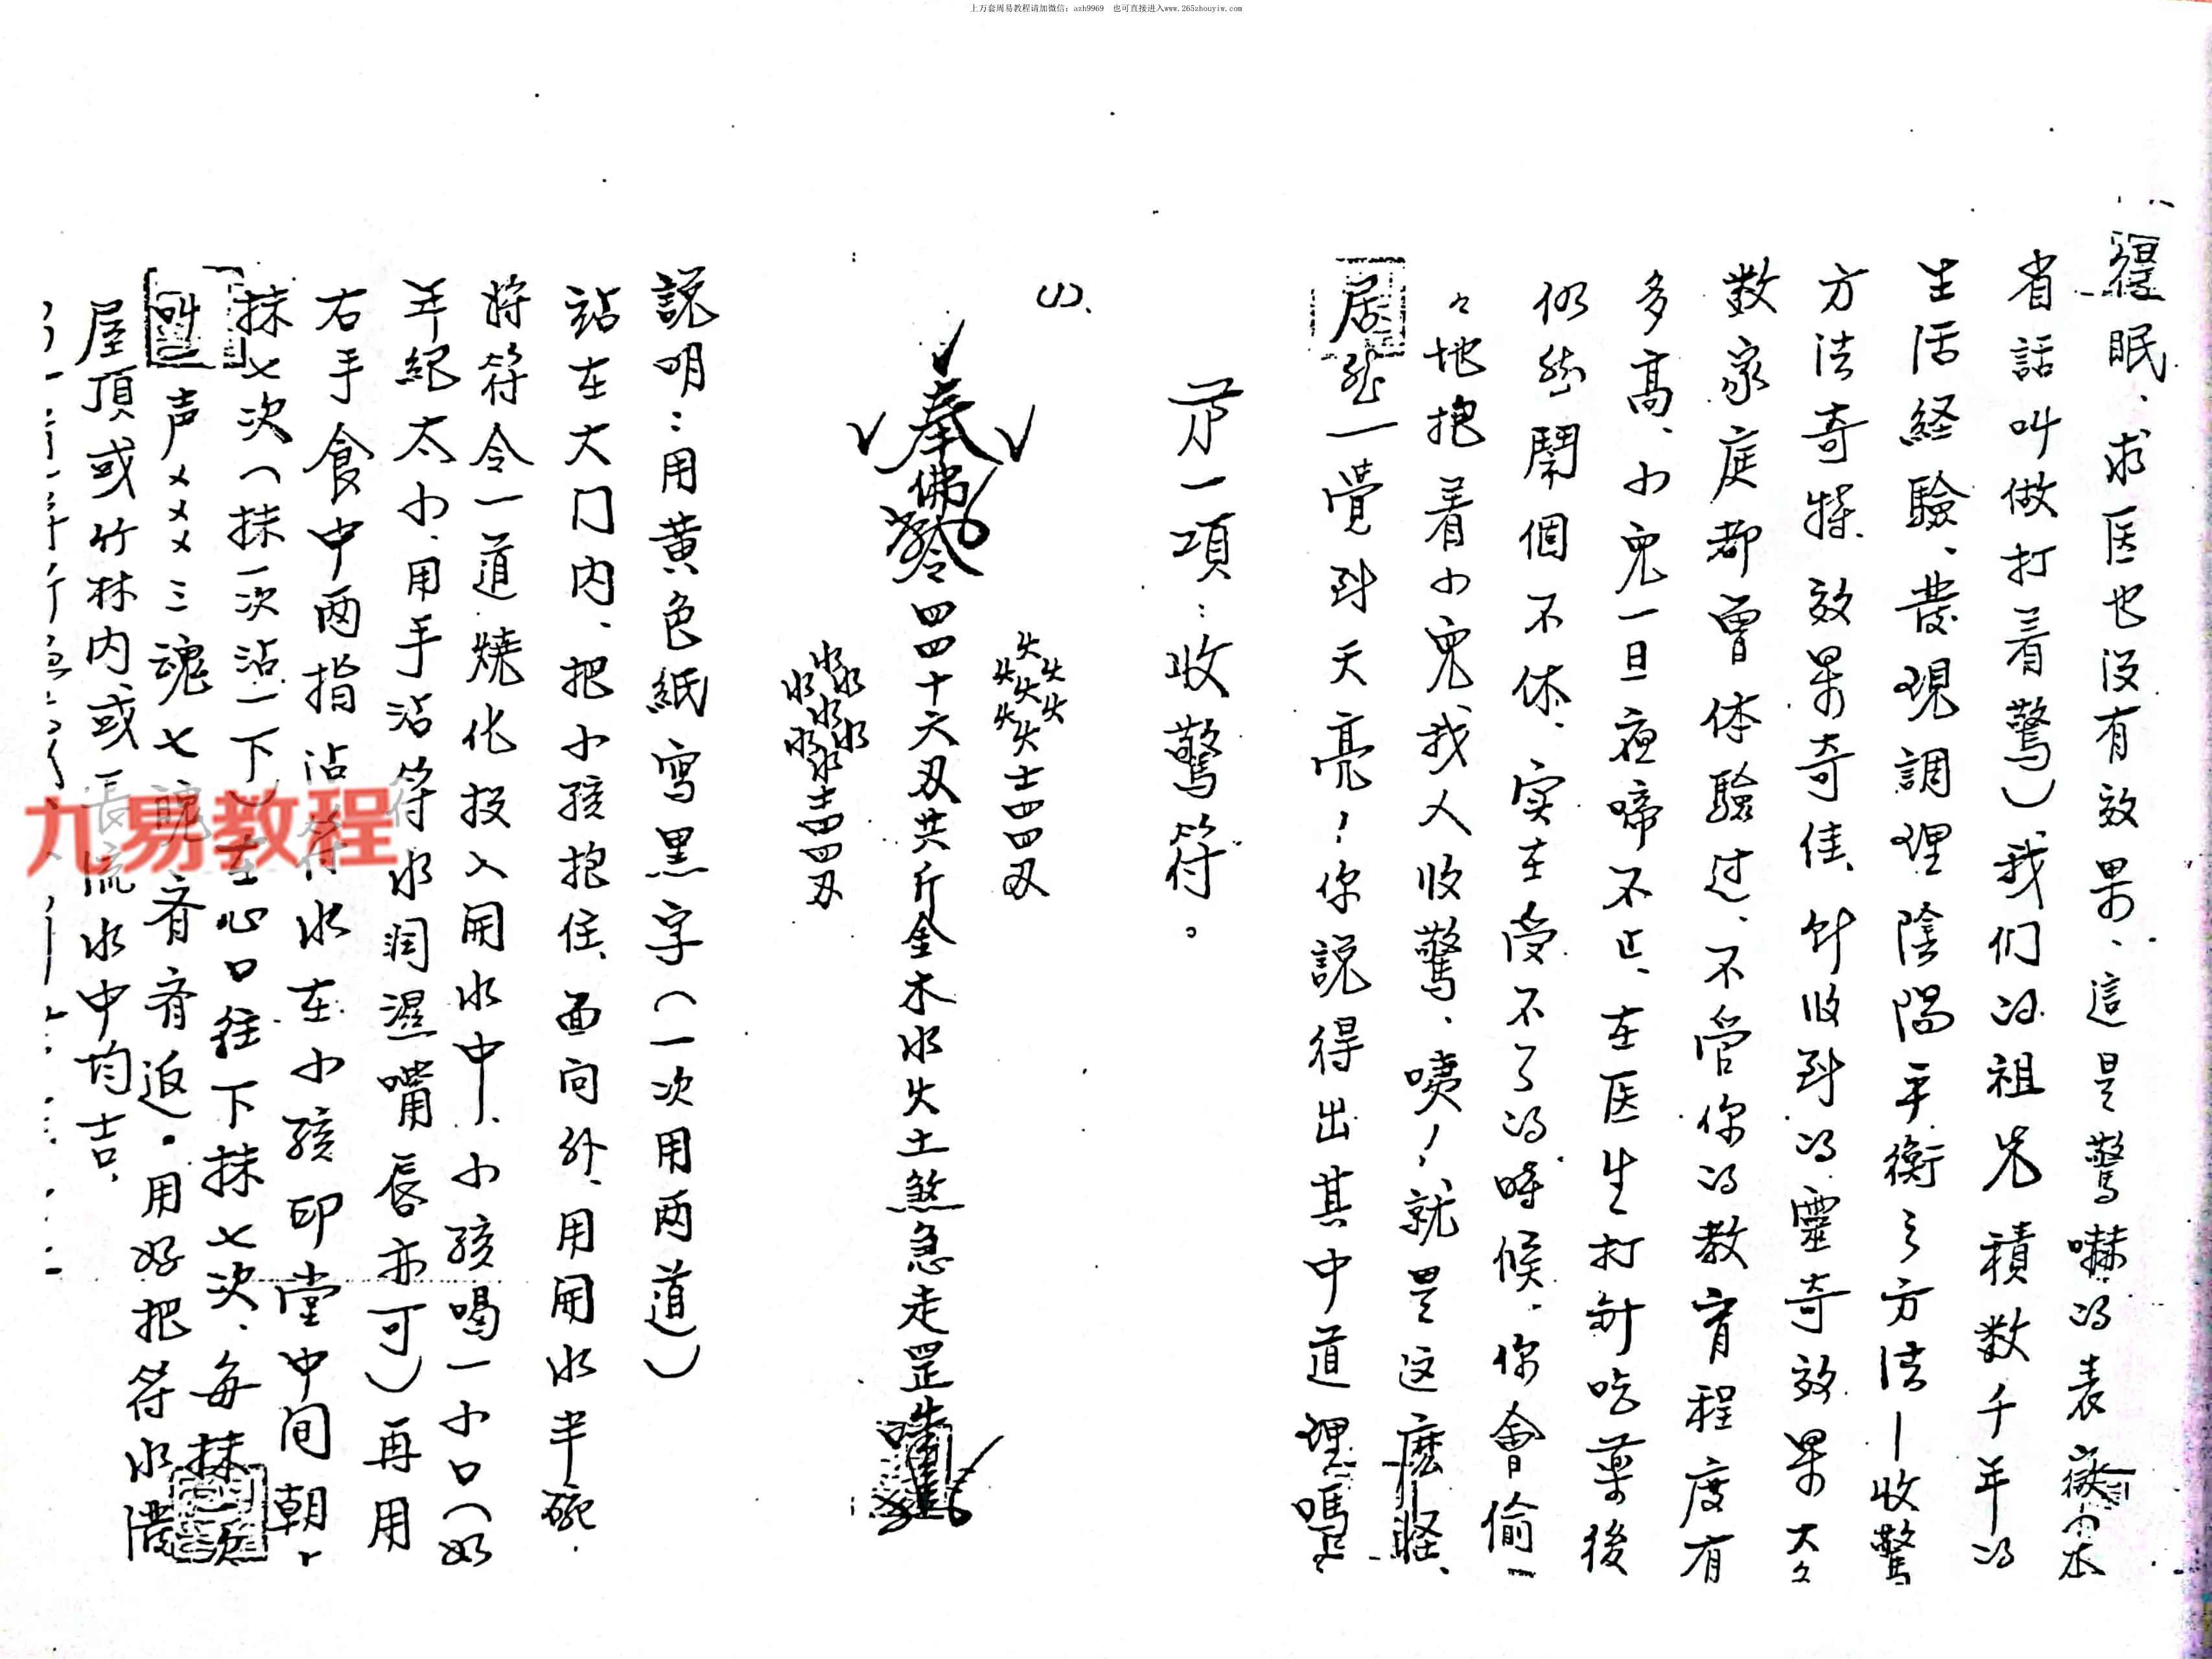 上万套周易教程请加微信：azh9969 也可直接进入www.265zhouyiw.com
得眠、求医也没有效果、這是驚嚇的表
省話叫做打着驚）我们的祖先積数千年的
生活経驗、發現調理陰陽平衡之方法—收驚
方法奇特、效果奇佳、針收到的靈奇效果大々
数家庭都曾体驗过、不管你的教育程度有
多高、小兒一旦夜啼不止、在医生打針吃葯後
仍然鬧個不休、实在受不了的時候、你會偷
々地抱着小兒找人收驚、咦！就是这麽怪、
居然一覺到天亮！你説得出其中道理嗎
第一項：收驚符。
(1)、
奉佛
四四十六刃共斤金木水火土煞急走罡
火火火火火火火士四四刃
水水水水水水水士四四刃
説明：用黄色紙寫黑字（一次用两道）
站在大门内、把小孩抱住、面向外、用開水半碗、
将符令一道燒化投入開水中、小孩喝一小口（如
年紀太小、用手沾符水润濕嘴唇亦可）再用
右手食中两指沾符水在小孩印堂中间朝上
抹七次（抹一次沾一下）在心口往下抹七次、每抹一次
叫一声×××三魂七魄齐齐返。用好把符水潑
屋頂或竹林内或長流水中均吉。
九易教程